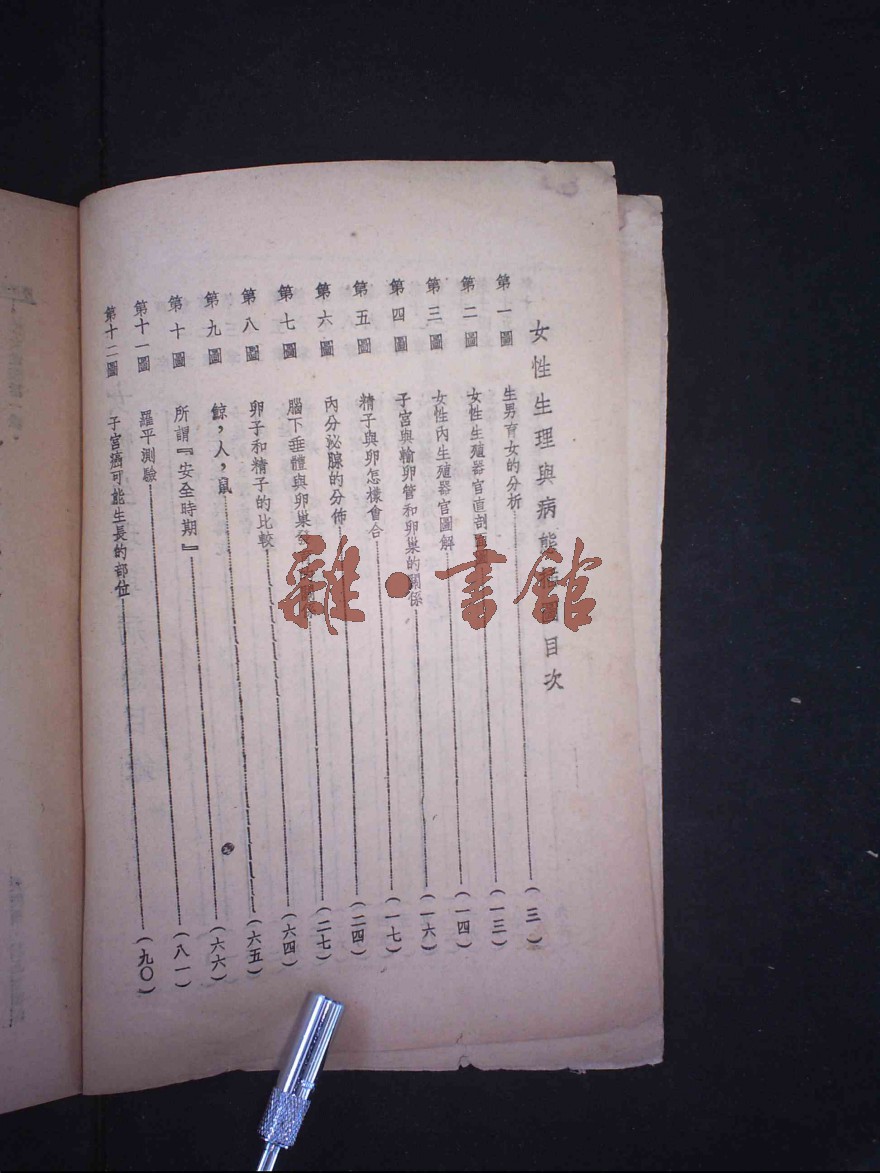 女性生理與病態圖目次
第一圖 生男育女的分析（三）
第二圖 女性生殖器官直剖（一三）
第三圖 女性內生殖器官圖解（一四）
第四圖 子宮與輸卵管和卵巢的關係（一六）
第五圖 精子與卵怎樣會合（一七）
第六圖 內分泌腺的分佈（二四）
第七圖 腦下垂體與卵巢（二七）
第八圖 卵子和精子的比較（六四）
第九圖 鯨，人，鼠（六五）
第十圖 所謂『安全時期』（六六）
第十一圖 羅平測驗（八一）
第十二圖 子宮癌可能生長的部位（九〇）
雜·書館